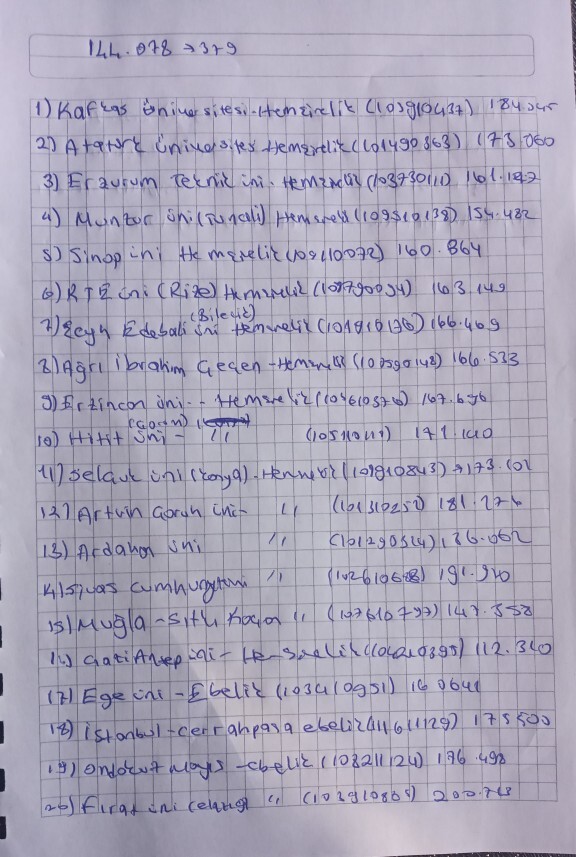 144.078 → 379
1) Kafkas üniversitesi-Hemşirelik (103910437) 184.245
2) Atatürk Üniversites Hemşirelik (101490363) 173.060
3) Erzurum Teknik üni. Hemşirelik (103730111) 161.192
4) Munzur üni (Tunceli) Hemşirelik (109510138) 154.482
5) Sinop üni Hemşirelik (109110072) 160.864
6) RTE üni (Rize) Hemşirelik (108790034) 163.149
(Bilecik)
7) Şeyh Edebali üni Hemşirelik (101910136) 166.469
8) Ağrı İbrahim Çeçen - Hemşirelik 166.533
9) Erzincan üni - Hemşirelik (103610576) 167.696
(Çorum)
10) Hitit üni - " (105110411) 171.140
11) Selçuk üni (Konya) - Hemşirelik (101910843) → 173.101
12) Artvin Çoruh üni - " (101310252) 181.276
13) Ardahan üni " (101290514) 186.062
14) Sivas Cumhuriyet üni " 191.940
15) Muğla - Sıtkı Koçman " (107610797) 147.558
16) Gaziantep üni - Hemşirelik (104210395) 112.340
17) Ege üni - Ebelik (103410951)
18) istanbul - cerrahpaşa ebelik (411611129) 175500
19) Ondokuz Mayıs - ebelik (108211124) 196.498
20) Fırat üni (elazığ " (103910865)